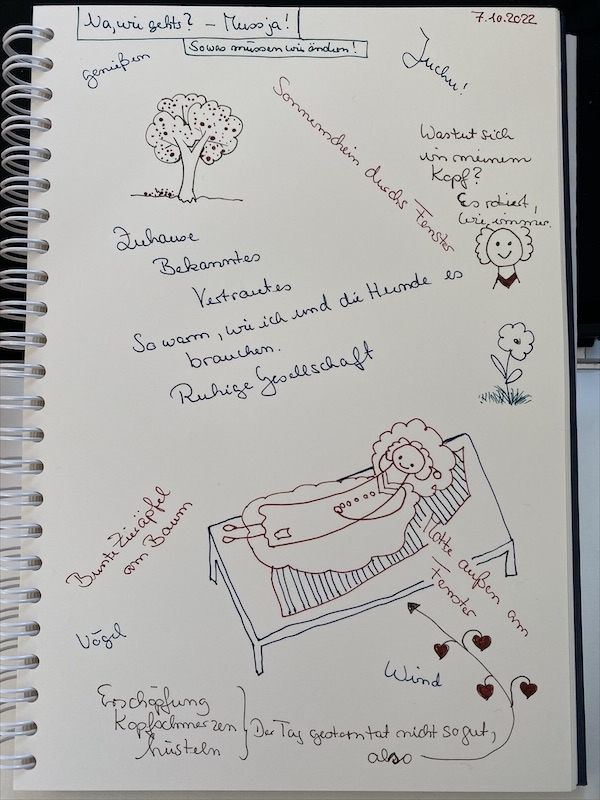 Na, wie gehts? – Muss ja!
7.10.2022
Sowas müssen wir ändern!
genießen
Juchu!
Sonnenschein durchs Fenster
Was tut sich
in meinem
Kopf?
Es rotiert,
wie immer.
Zuhause
Bekanntes
Vertrautes
So warm, wie ich und die Hunde es
brauchen.
Ruhige Gesellschaft
Bunte Zieräpfel
am Baum
Motte außen am
Fenster
Vögel
Wind
Erschöpfung
Kopfschmerzen
hüsteln
Der Tag gestern tat nicht so gut,
also